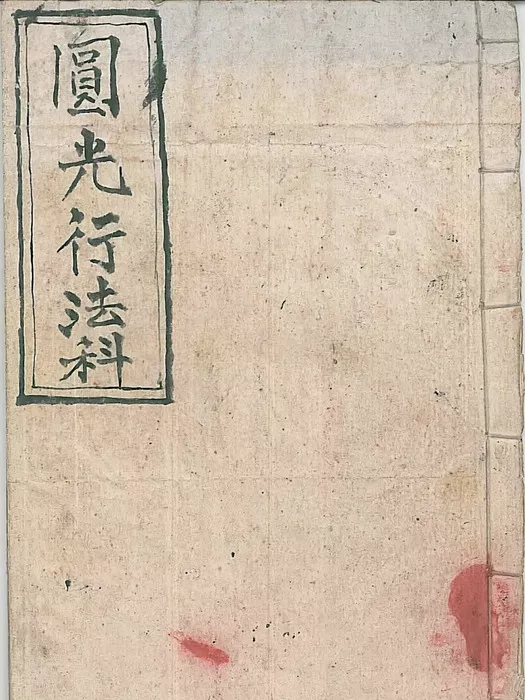 圓光行法科